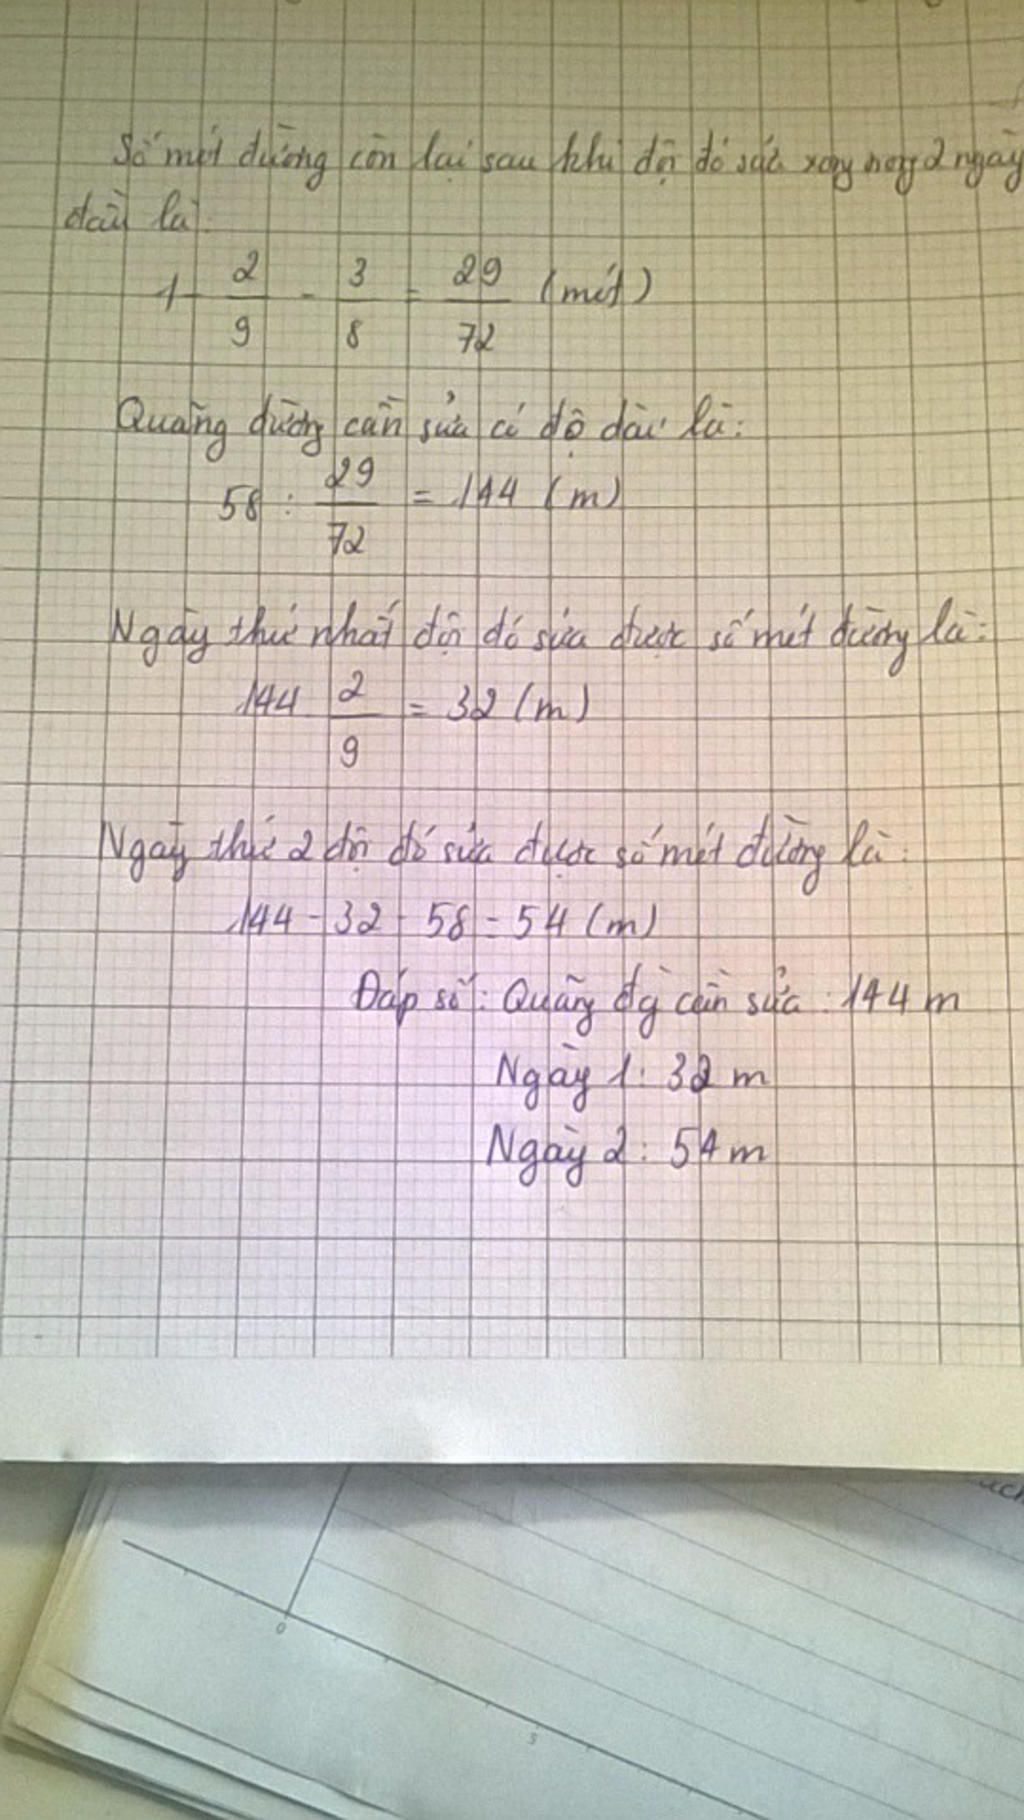 Số mét đường còn lại sau khi đội đó sửa xong 2 ngày
đầu là:
1 - 2/9 - 3/8 = 29/72 (mét)
Quãng đường cần sửa có độ dài là:
58 : 29/72 = 144 (m)
Ngày thứ nhất đội đó sửa được số mét đường là:
144 2/9 = 32 (m)
Ngày thứ 2 đội đó sửa được số mét đường là:
144 - 32 - 58 = 54 (m)
Đáp số: Quãng đg cần sửa : 144 m
Ngày 1: 32 m
Ngày 2: 54 m
0
5